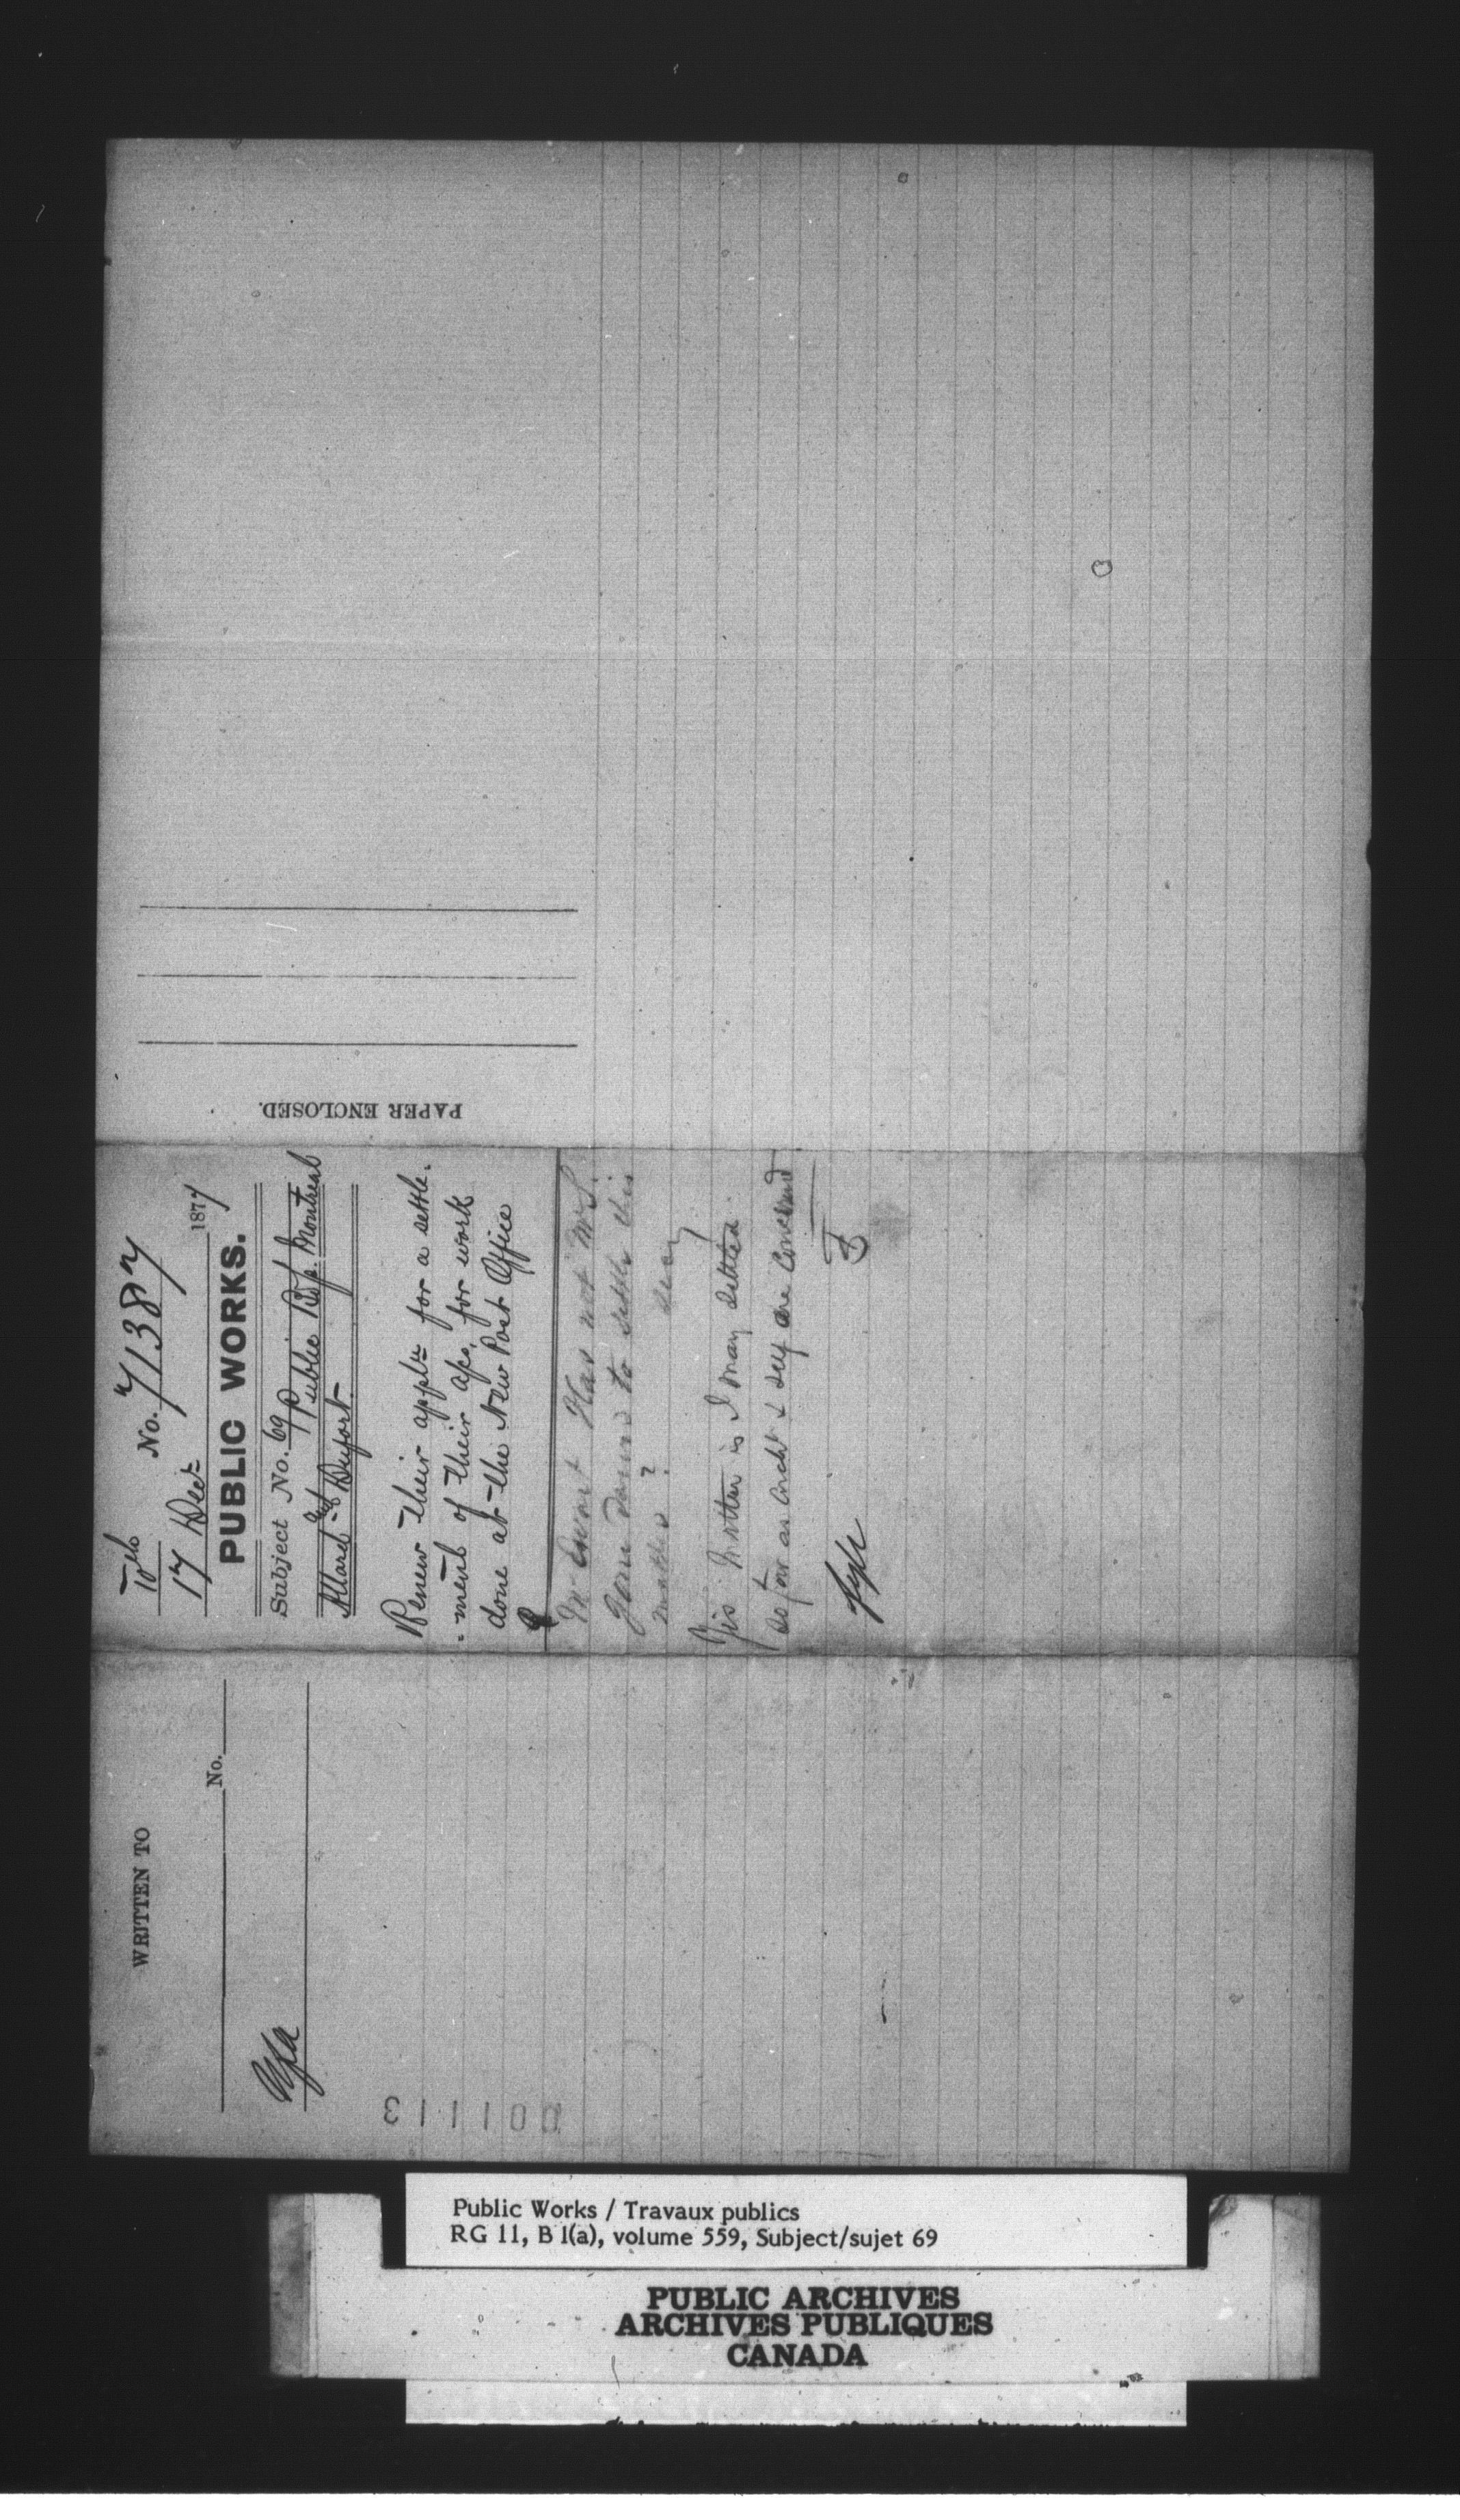 WRITTEN TO
No.
001113
10th
No. 71387
17 Dec 1877
PUBLIC WORKS.
Subject No. 69 p
Public Bdgs. Montreal
Allard and Dufort.
Renew their appln for a settle-
-ment of their a/cs. for work
done at the New Post Office
Mr Ewart Has not Mr S.
gone down to settle this
matter?
Yes Matter is I may settled
so far as Archt & they are concerned
PAPER ENCLOSED.
Public Works / Travaux publics
RG 11, B 1(a), volume 559, Subject/sujet 69
PUBLIC ARCHIVES
ARCHIVES PUBLIQUES
CANADA